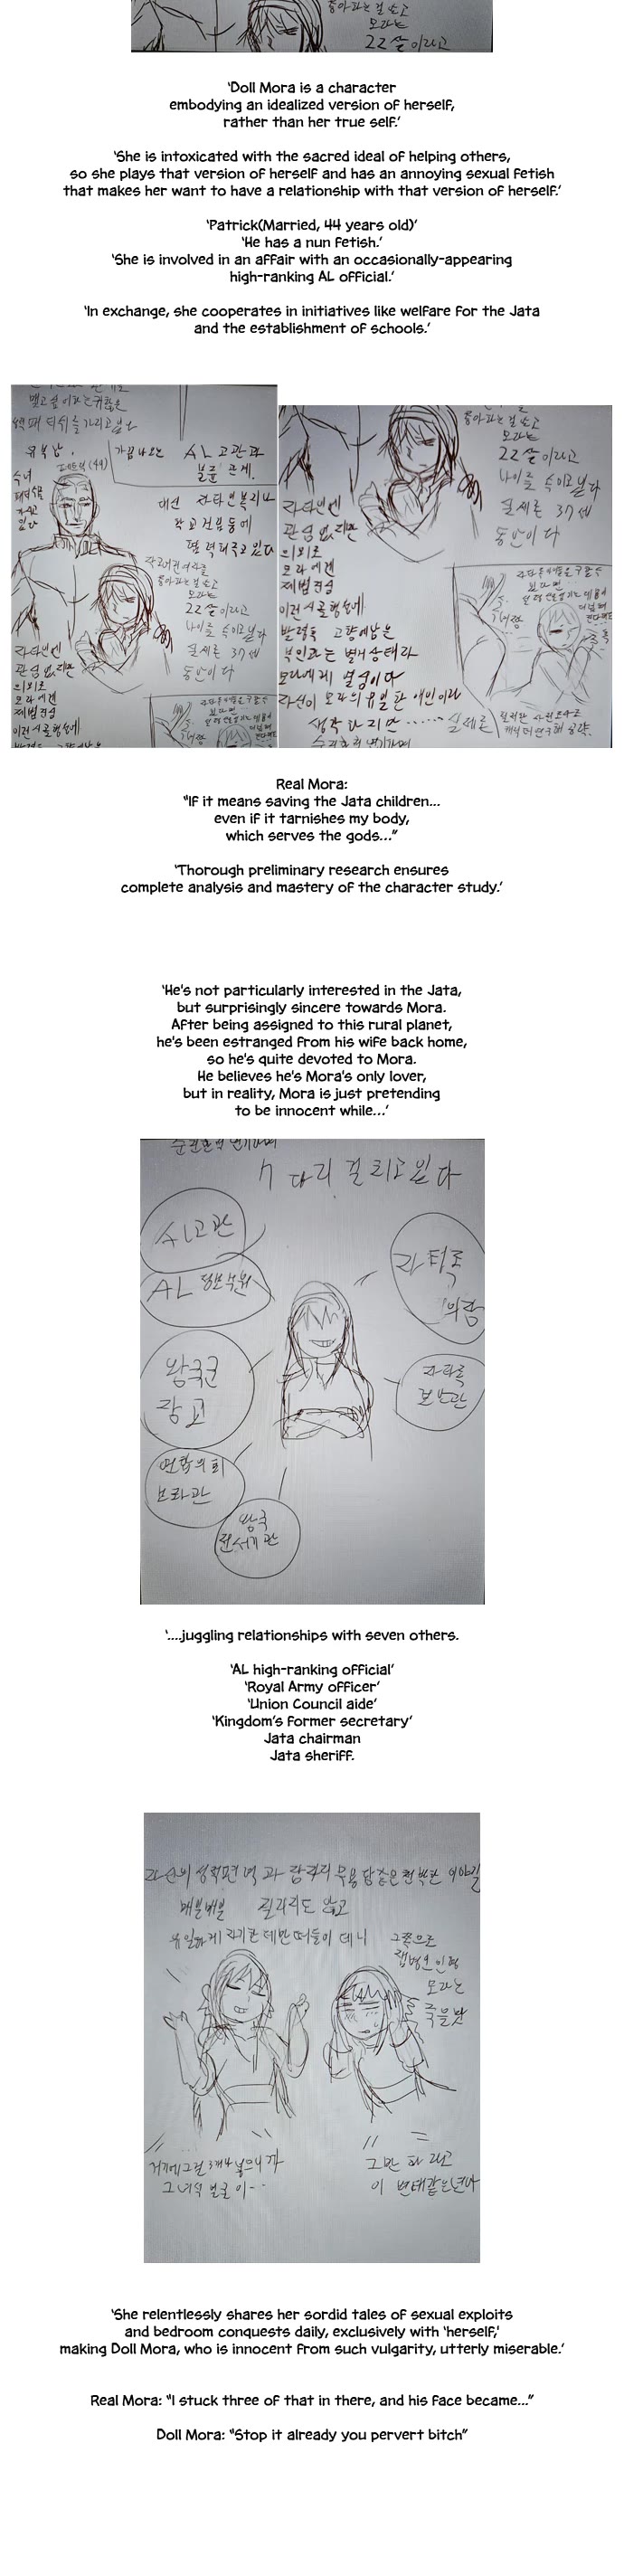 좋아하는걸 알고
모라는
22살이라고
'Doll Mora is a character
embodying an idealized version of herself,
rather than her true self.'
'She is intoxicated with the sacred ideal of helping others,
so she plays that version of herself and has an annoying sexual fetish
that makes her want to have a relationship with that version of herself.'
'Patrick(Married, 44 years old)'
'He has a nun fetish.'
'She is involved in an affair with an occasionally-appearing
high-ranking AL official.'
'In exchange, she cooperates in initiatives like welfare for the Jata
and the establishment of schools.'
맺고싶어하는귀찮은
유부남.
패트릭(44)
가끔나오는
AL고관과
불륜관계.
수녀
있다
대신 자타인복지나
학교건립등에
협력하고있다
좋아하는걸 알고
모라는
22살이라고
나이를 속이고있다
실제론 37세
동안이다
자타인엔
관심없지만
의외로
모라에겐
제법진심
이런시골행성에
좋아하는걸 알고
모라는
22살이라고
나이를 속이고있다
실제론 37세
동안이다
자타인엔
관심없지만
의외로
모라에겐
제법진심
이런시골행성에
발령후 고향에남은
부인과는 별거상태라
모라에게 열심이다
자신이 모라의유일한 애인이라
생각하지만...... 실제론
Real Mora:
"If it means saving the Jata children...
even if it tarnishes my body,
which serves the gods..."
'Thorough preliminary research ensures
complete analysis and mastery of the character study.'
'He's not particularly interested in the Jata,
but surprisingly sincere towards Mora.
After being assigned to this rural planet,
he's been estranged from his wife back home,
so he's quite devoted to Mora.
He believes he's Mora's only lover,
but in reality, Mora is just pretending
to be innocent while...'
순진한척 연기하며
7다리 걸치고있다
AL고관
AL
자타족
의장
왕국군
장교
자타족
보안관
연합의회
보좌관
왕국
전서기관
'....juggling relationships with seven others.
'AL high-ranking official'
'Royal Army officer'
'Union Council aide'
'Kingdom's former secretary'
Jata chairman
Jata sheriff.
매일매일 질리지도 않고
유일하게 자기한테만 떠들어대니
그쪽으로
인형
모라는
죽을맛
거기에그걸 3개나 넣으니까
그녀석 얼굴이...
그만 하라고
이 변태같은년아
'She relentlessly shares her sordid tales of sexual exploits
and bedroom conquests daily, exclusively with 'herself,'
making Doll Mora, who is innocent from such vulgarity, utterly miserable.'
Real Mora: "I stuck three of that in there, and his face became..."
Doll Mora: "Stop it already you pervert bitch"